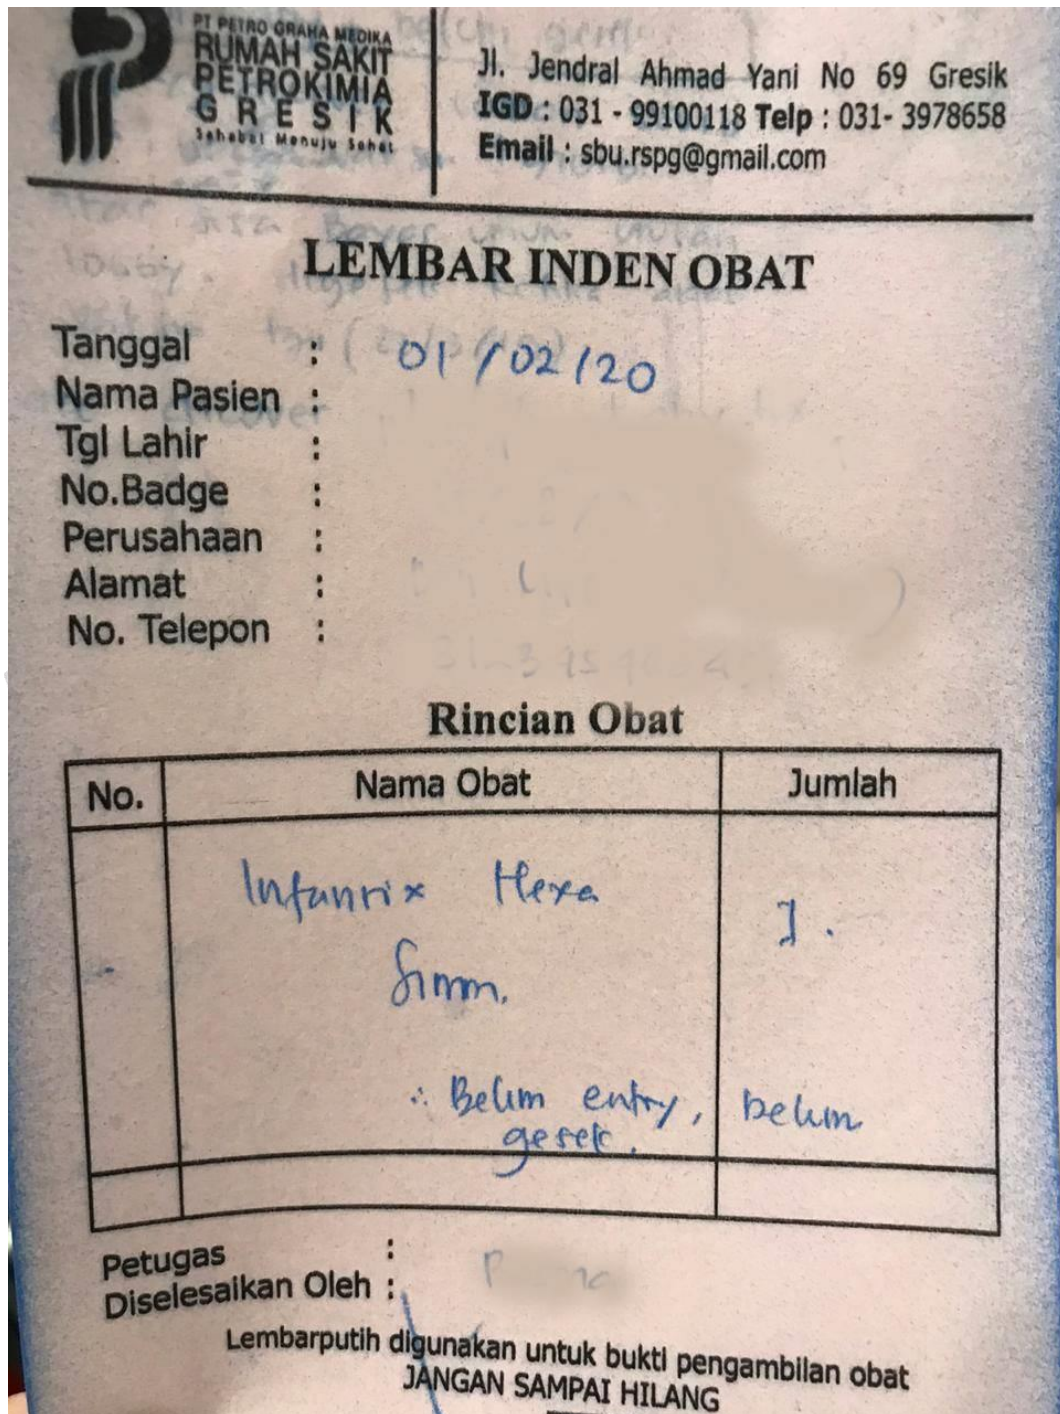 PT PETRO GRAHA MEDIKA
RUMAH SAKIT
PETROKIMIA
GRESIK
Sahabat Menuju Sehat
Jl. Jendral Ahmad Yani No 69 Gresik
IGD : 031 - 99100118 Telp : 031- 3978658
Email : sbu.rspg@gmail.com
LEMBAR INDEN OBAT
Tanggal : 01/02/20
Nama Pasien :
Tgl Lahir :
No.Badge :
Perusahaan :
Alamat :
No. Telepon :
Rincian Obat
No. Nama Obat Jumlah
Infanrix Hexa 1.
∴ Belum entry, belum
gesek.
Petugas :
Diselesaikan Oleh :
Lembarputih digunakan untuk bukti pengambilan obat
JANGAN SAMPAI HILANG